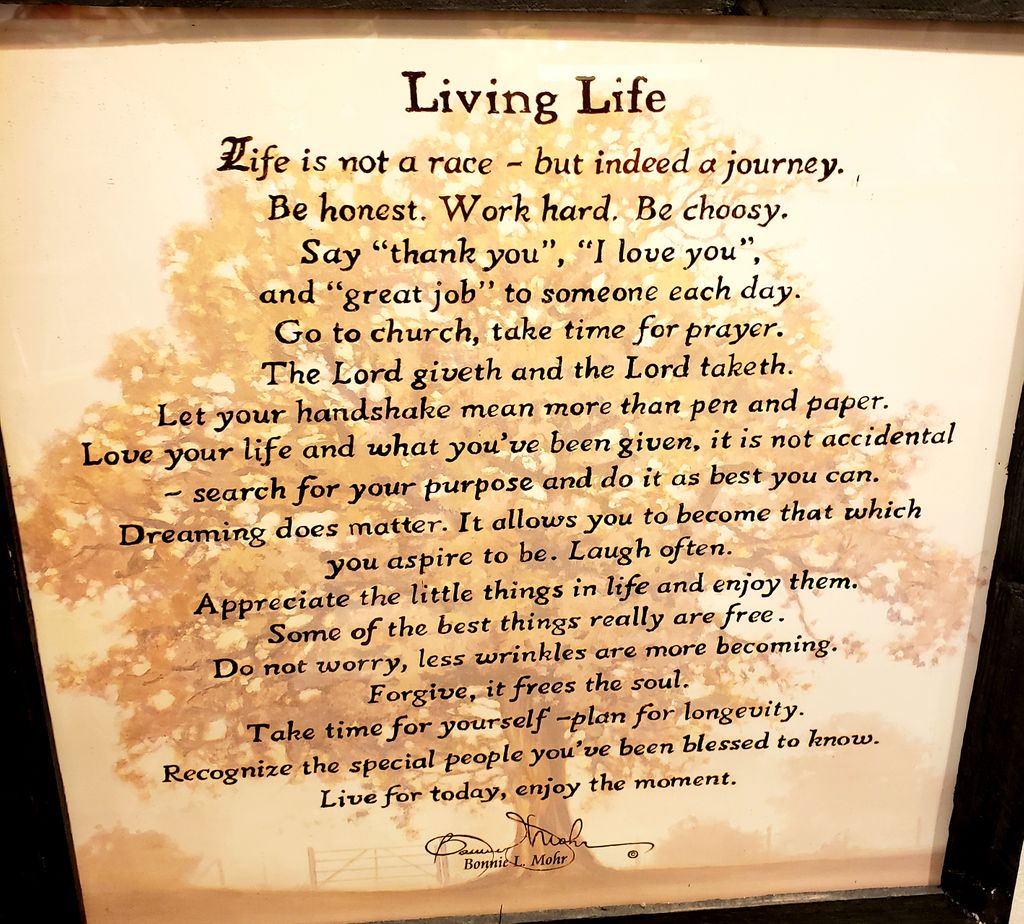 Living Life
Life is not a race – but indeed a journey.
Be honest. Work hard. Be choosy.
Say “thank you”, “I love you”,
and “great job” to someone each day.
Go to church, take time for prayer.
The Lord giveth and the Lord taketh.
Let your handshake mean more than pen and paper.
Love your life and what you’ve been given, it is not accidental
– search for your purpose and do it as best you can.
Dreaming does matter. It allows you to become that which
you aspire to be. Laugh often.
Appreciate the little things in life and enjoy them.
Some of the best things really are free.
Do not worry, less wrinkles are more becoming.
Forgive, it frees the soul.
Take time for yourself –plan for longevity.
Recognize the special people you’ve been blessed to know.
Live for today, enjoy the moment.
Bonnie Mohr
Bonnie L. Mohr ©